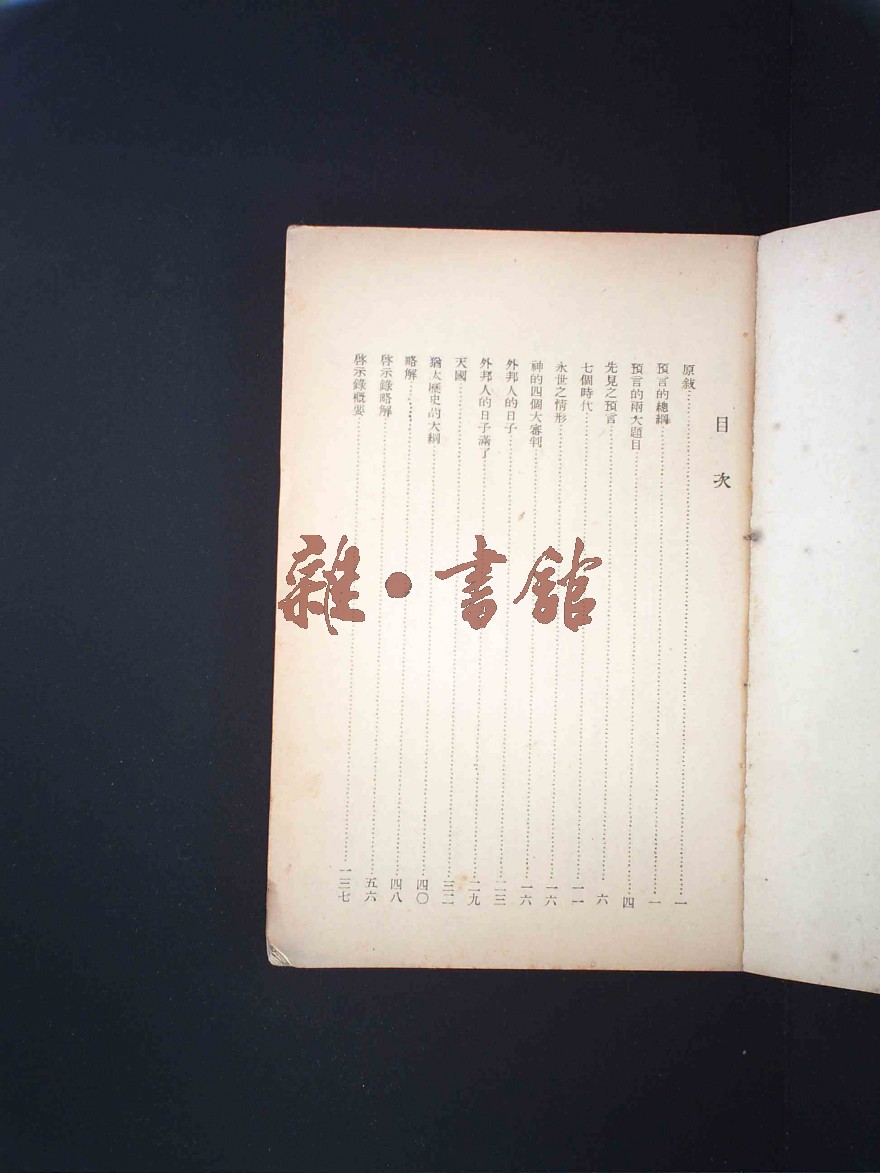 目次
原敍……一
預言的總綱……一
預言的兩大題目……四
先見之預言……六
七個時代……一一
永世之情形……一六
神的四個大審判……一六
外邦人的日子……二三
外邦人的日子滿了……二九
天國……三二
猶太歷史的大綱……四〇
略解……四八
啓示錄略解……五六
啓示錄概要……一三七
雜·書館